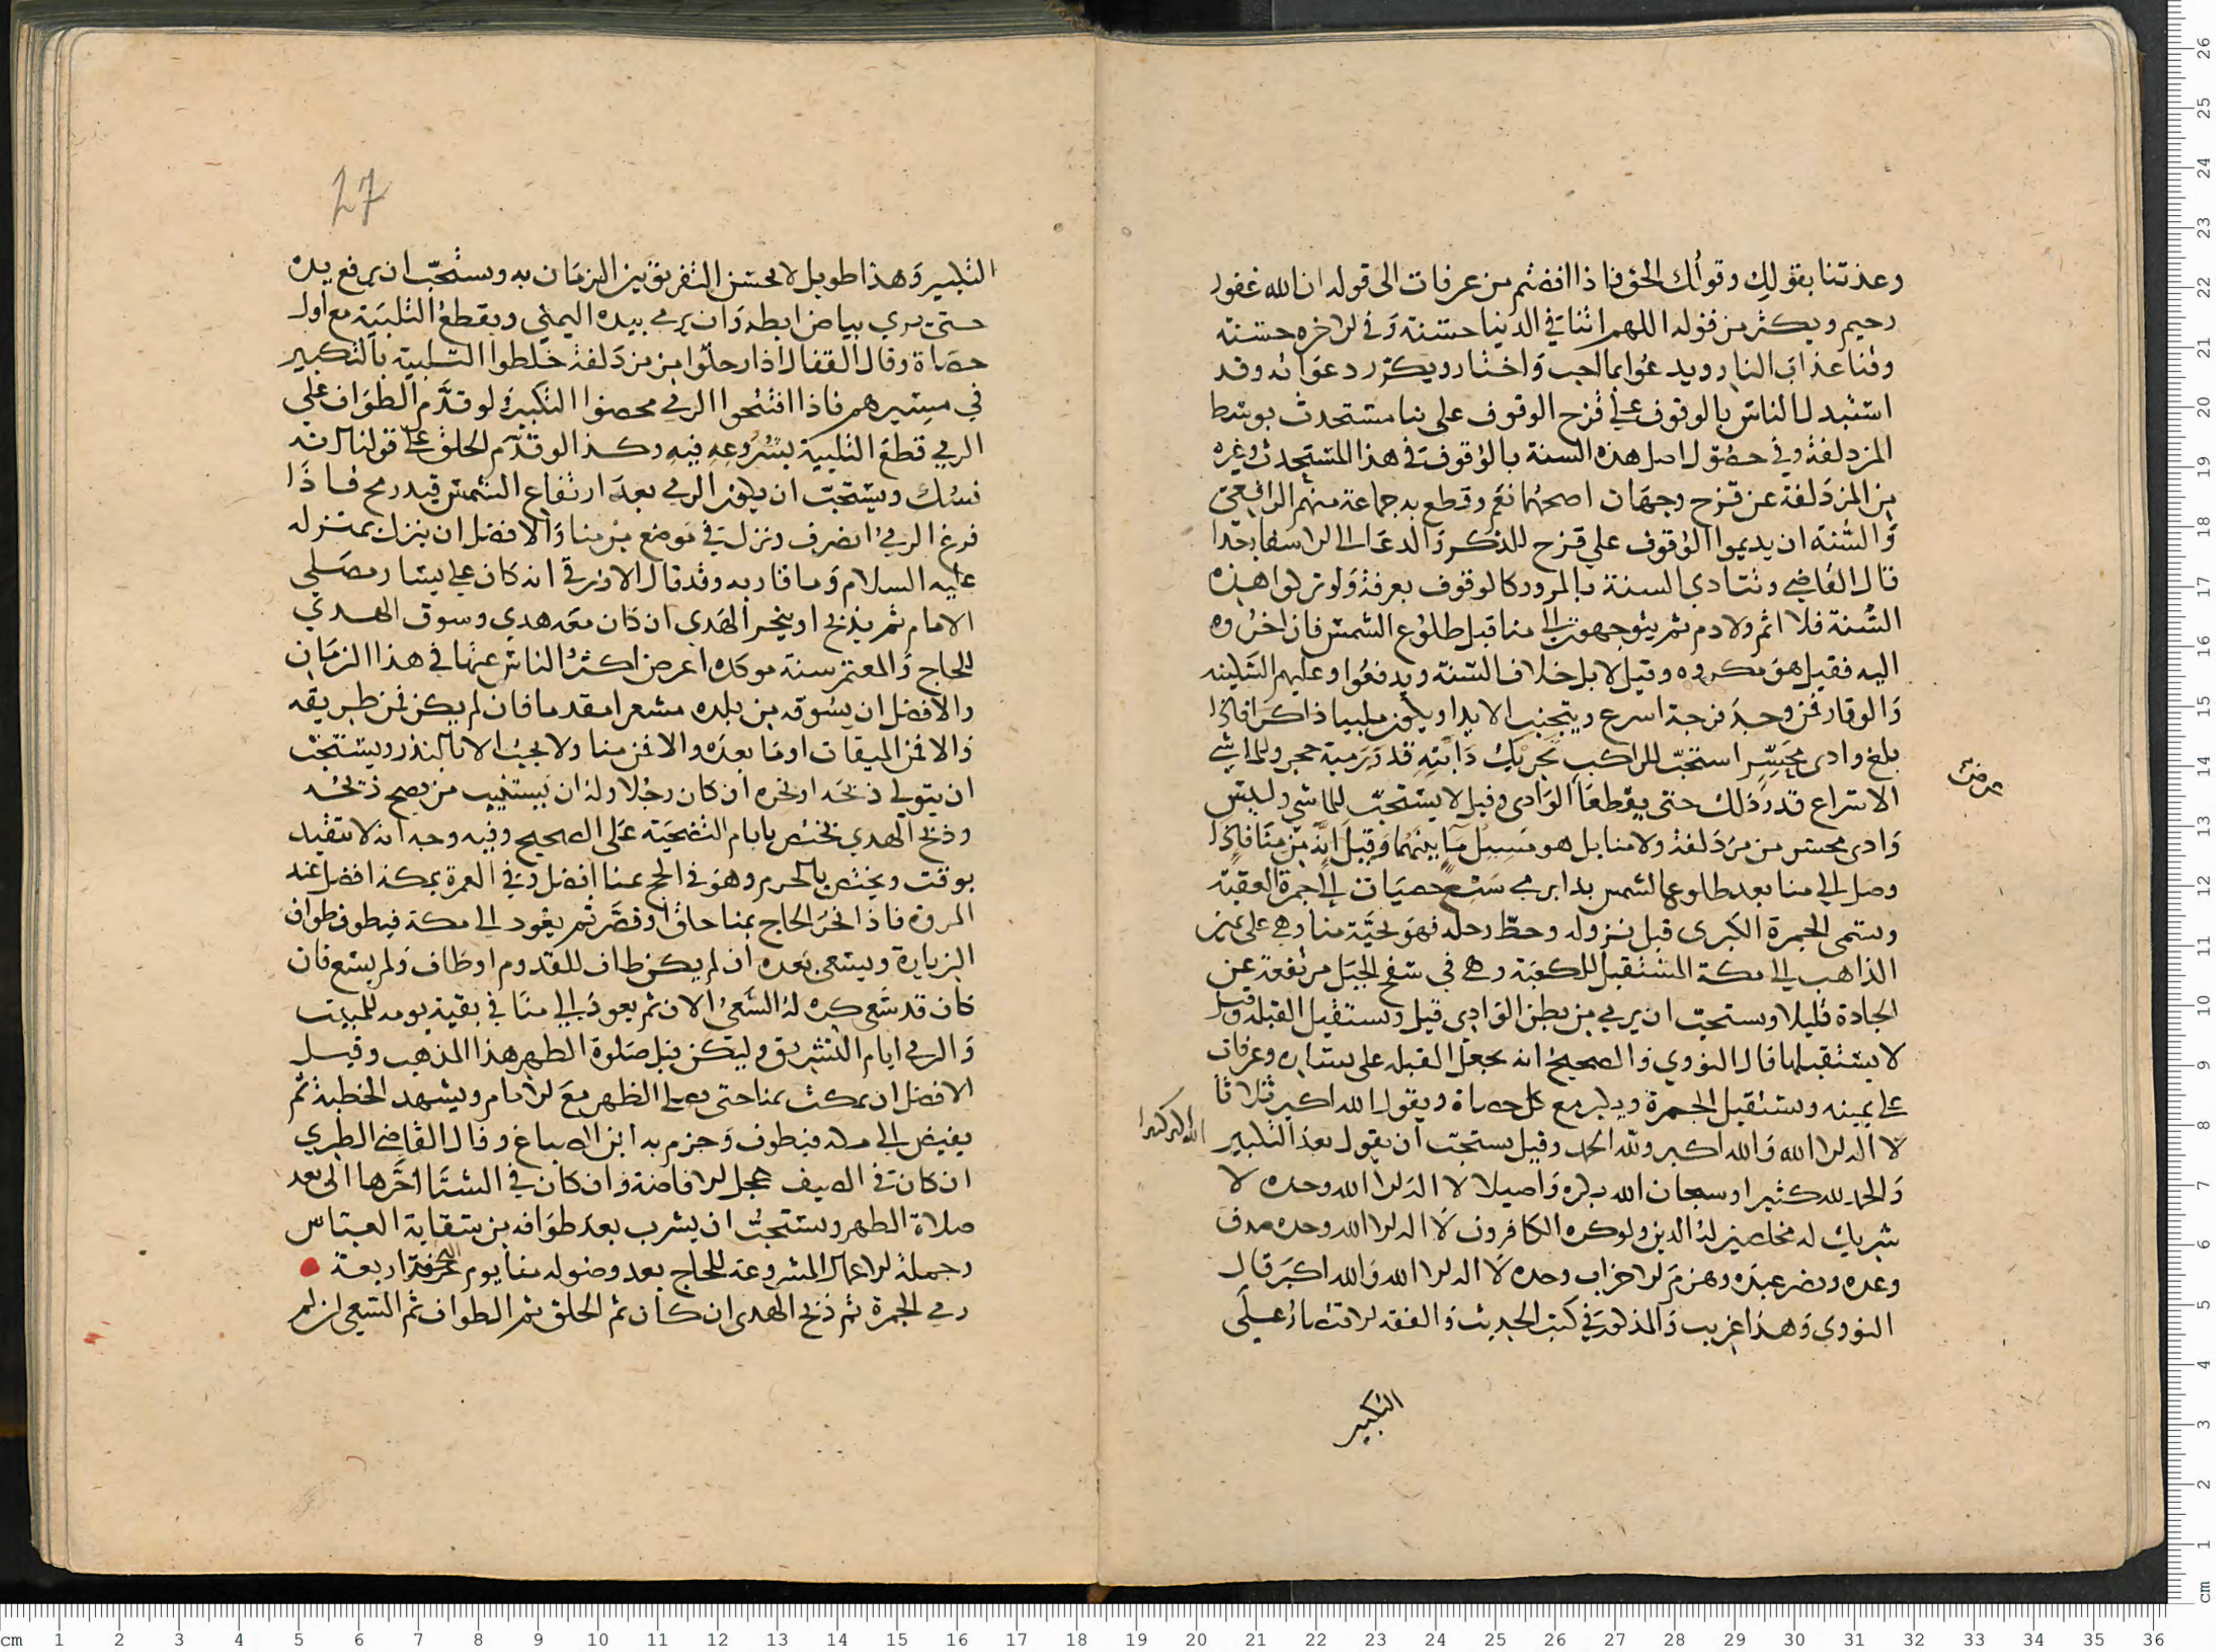 وعدتنا بقولك وقولك الحق فاذا افضتم من عرفات الى قوله ان الله غفور
رحيم ويكثر من قوله اللهم اتنا في الدنيا حسنة وفي الاخره حسنة
وقنا عذاب النار ويدعوا بما احب واختار ويكرر دعواته وقد
استبدل الناس بالوقوف على قزح الوقوف على بنا مستحدث بوسط
المزدلفة وفي حصول اصل هذه السنة بالوقوف في هذا المستحدث وغيره
من المزدلفة عن قزح وجهان اصحهما نعم وقطع به جماعة منهم الرافعي
والسنة ان يديموا الوقوف على قزح للذكر والدعا الى الاسفار جدا
قال القاضي وتتادى السنة بالمرور كالوقوف بعرفة ولو تركوا هذه
السنة فلا اثم ولا دم ثم يتوجهون الى منا قبل طلوع الشمس فان اخروه
اليه فقيل هو مكروه وقيل لا بل خلاف السنة ويدفعوا وعليهم السكينه
والوقار فمن وجد فرجة اسرع ويتجنب الايذا ويكون ملبيا ذاكرا فاذا
بلغ وادى محسر استحب للراكب تحريك دابته قدر رمية حجر وللماشي
الاسراع قدر ذلك حتى يقطعا الوادى وقيل لا يستحب للماشي وليس
وادى محسر من مزدلفة ولا منا بل هو مسيل ما بينهما وقيل انه من منا فاذا
وصل الى منا بعد طلوع الشمس بدا برمي سبع حصيات الى جمرة العقبة
وتسمى الجمرة الكبرى قبل نزوله وحط رحله فهو تحية منا وهي على يمين
الذاهب الى مكة المستقبل للكعبة وهي في سفح الجبل مرتفعة عن
الجادة قليلا ويستحب ان يرمي من بطن الوادى قيل ويستقبل القبلة وقيل
لا يستقبلها قال النووي والصحيح انه يجعل القبله على يساره وعرفات
على يمينه ويستقبل الجمرة ويكبر مع كل حصاة ويقول الله اكبر ثلاثا
لا اله الا الله والله اكبر ولله الحمد وقيل يستحب ان يقول بعد التكبير
الله اكبر كبيرا
والحمد لله كثيرا وسبحان الله بكرة واصيلا لا اله الا الله وحده لا
شريك له مخلصين له الدين ولو كره الكافرون لا اله الا الله وحده صدق
وعده ونصر عبده وهزم الاحزاب وحده لا اله الا الله والله اكبر قال
النووي وهذا غريب والمذكور في كتب الحديث والفقه الاقتصار على
التكبير
27
التكبير وهذا طويل لا يحسن التفريق بين الزمان به ويستحب ان يرفع يده
حتى يرى بياض ابطه وان يرمي بيده اليمنى ويقطع التلبية مع اول
حصاة وقال القفال اذا رحلوا من مزدلفة خلطوا التلبية بالتكبير
في مسيرهم فاذا افتتحوا الرمي محضوا التكبير لو قدم الطواف على
الرمي قطع التلبية بشروعه فيه وكذا لو قدم الحلق على قولنا انه
نسك ويستحب ان يكون الرمي بعد ارتفاع الشمس قيد رمح فاذا
فرغ الرمي انصرف ونزل في موضع من منا والافضل ان ينزل بمنزله
عليه السلام وما قاربه وقد قال الازرقي انه كان على يسار مصلى
الامام ثم يذبح او ينحر الهدى ان كان معه هدي وسوق الهدي
للحاج والمعتمر سنة موكده اعرض اكثر الناس عنها في هذا الزمان
والافضل ان يسوقه من بلده مشعرا مقلدا فان لم يكن فمن طريقه
والا فمن الميقات او ما بعده والا فمن منا ولا يجب الا بالنذر ويستحب
ان يتولى ذبحه او نحره ان كان رجلا وله ان يستنيب من يصح ذبحه
وذبح الهدي يختص بايام التضحية على الصحيح وفيه وجه انه لا يتقيد
بوقت ويختص بالحرم وهو في الحج بمنا افضل وفي العمرة بمكة افضل عند
المروة فاذا نحر الحاج بمنا حلق او قصر ثم يعود الى مكة فيطوف طواف
الزيارة ويسعى بعده ان لم يكن طاف للقدوم او طاف ولم يسع فان
كان قد سعى كره له السعي الان ثم يعود الى منا في بقية يومه للمبيت
والرمي ايام التشريق وليكن قبل صلوة الظهر هذا المذهب وقيل
الافضل ان يمكث بمنا حتى يصلي الظهر مع الامام ويشهد الخطبة ثم
يفيض الى مكه فيطوف وجزم به ابن الصباغ وقال القاضي الطبري
ان كان في الصيف عجل الافاضة وان كان في الشتا اخرها الى بعد
صلاة الظهر ويستحب ان يشرب بعد طوافه من سقاية العباس
وجملة الاعمال المشروعة للحاج بعد وصوله منا يوم النحر اربعة
رمي الجمرة ثم ذبح الهدى ان كان ثم الحلق ثم الطواف ثم السعي ان لم